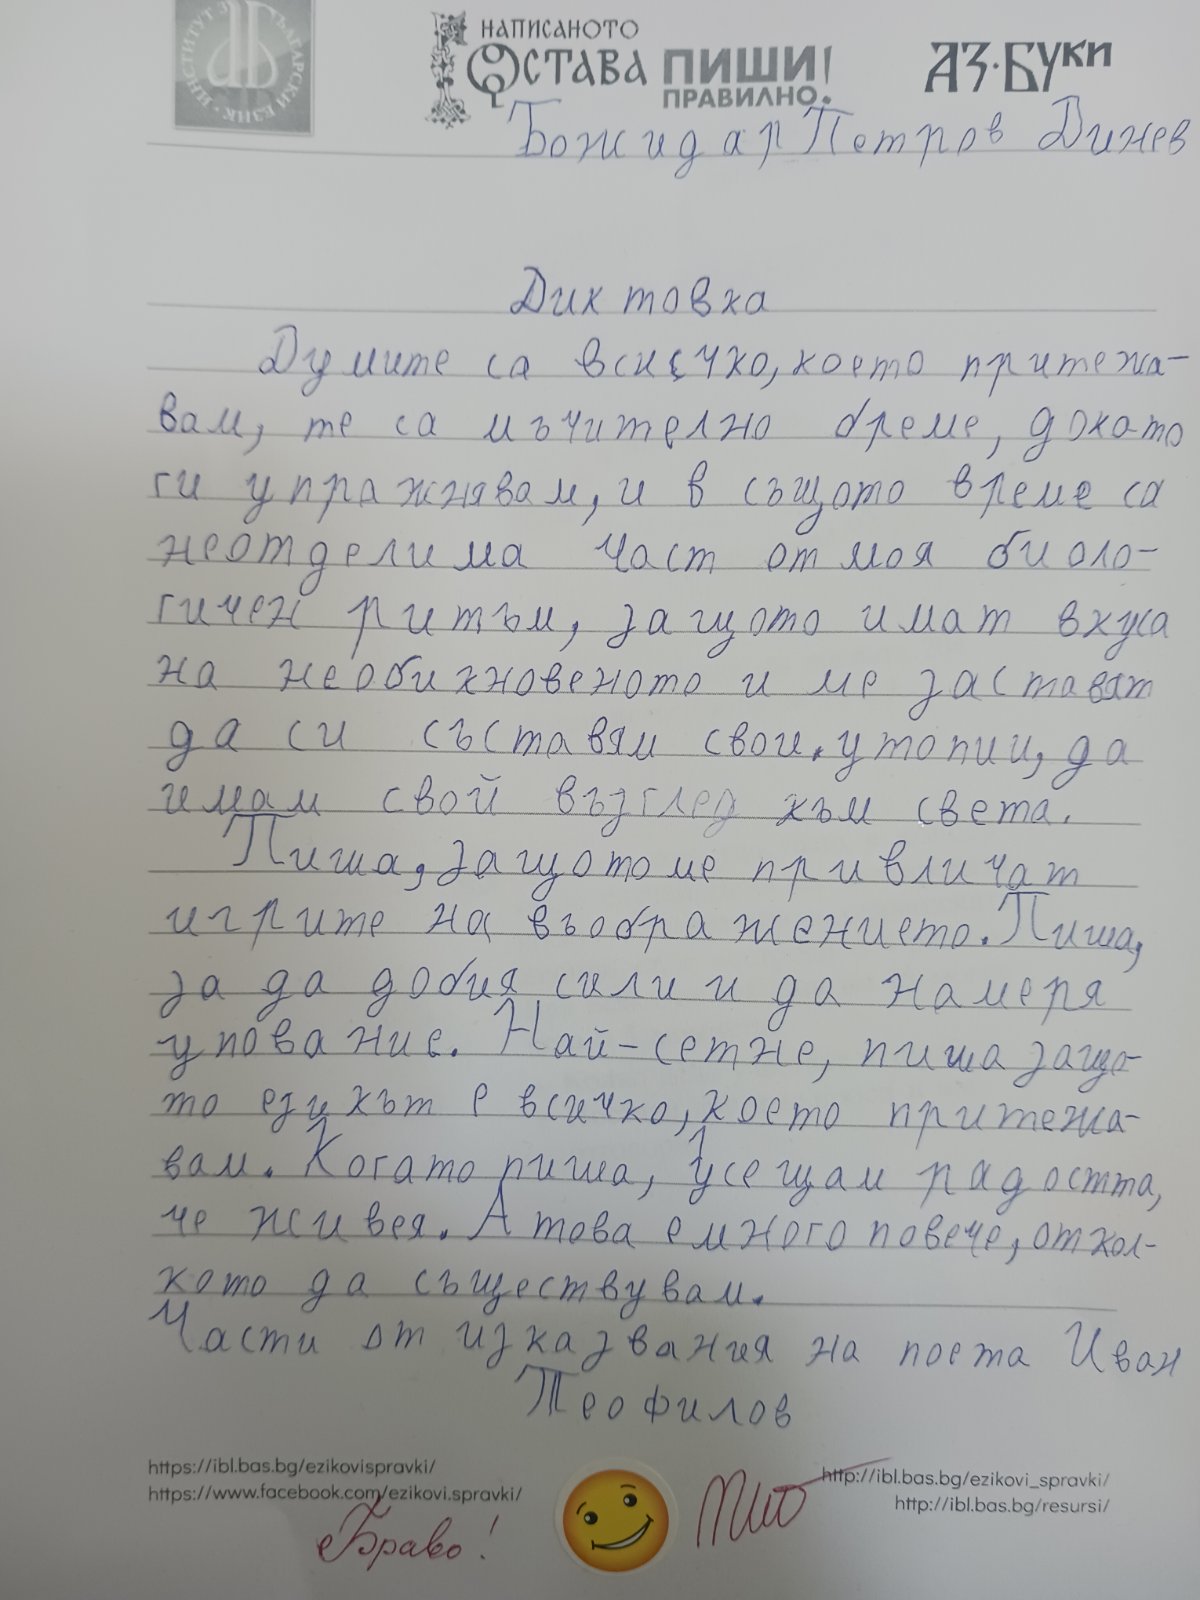 ИНСТИТУТ ЗА БЪЛГАРСКИ ЕЗИК
НАПИСАНОТО
ОСТАВА
ПИШИ!
ПРАВИЛНО.
АЗ·БУКИ
Божидар Петров Динев
Диктовка
Думите са всичко, което притежа-
вам, те са мъчително бреме, докато
ги упражнявам, и в същото време са
неотделима част от моя биоло-
гичен ритъм, защото имат вкуса
на необикновеното и ме заставят
да си съставям свои утопии, да
имам свой възглед към света.
Пиша, защото ме привличат
игрите на въображението. Пиша,
за да добия сили и да намеря
упование. Най-сетне, пиша защо-
то езикът е всичко, което притежа-
вам. Когато пиша, усещам радостта,
че живея. А това е много повече, откол-
кото да съществувам.
Части от изказвания на поета Иван
Теофилов
https://ibl.bas.bg/ezikovispravki/
https://www.facebook.com/ezikovi.spravki/
http://ibl.bas.bg/ezikovi_spravki/
http://ibl.bas.bg/resursi/
Браво!